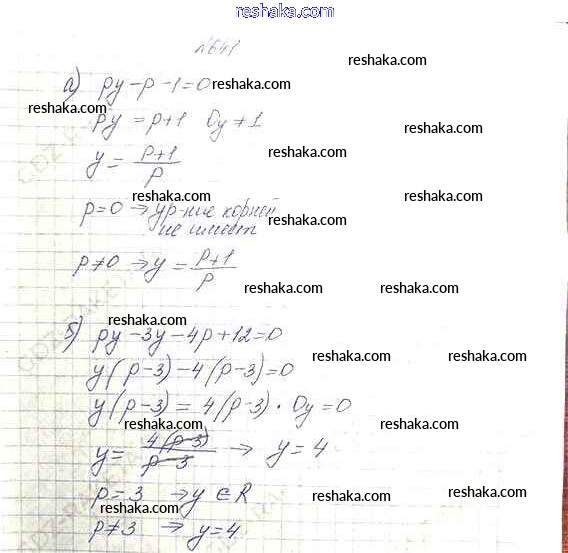 reshaka.com
№641
reshaka.com
а) py-p-1=0 reshaka.com
reshaka.com
py = p+1 0y≠1 reshaka.com
y = \frac{p+1}{p} reshaka.com
reshaka.com
p=0 → ур-ние корней reshaka.com
не имеет reshaka.com
p≠0 → y = \frac{p+1}{p}
reshaka.com reshaka.com
reshaka.com
б) py-3y-4p+12=0
reshaka.com reshaka.com
y(p-3)-4(p-3)=0
y(p-3) = 4(p-3) · 0y=0
reshaka.com reshaka.com
y = \frac{4(p-3)}{p-3} → y=4
reshaka.com reshaka.com
p=3 → y ∈ R
reshaka.com reshaka.com
reshaka.com
p≠3 → y=4
reshaka.com reshaka.com